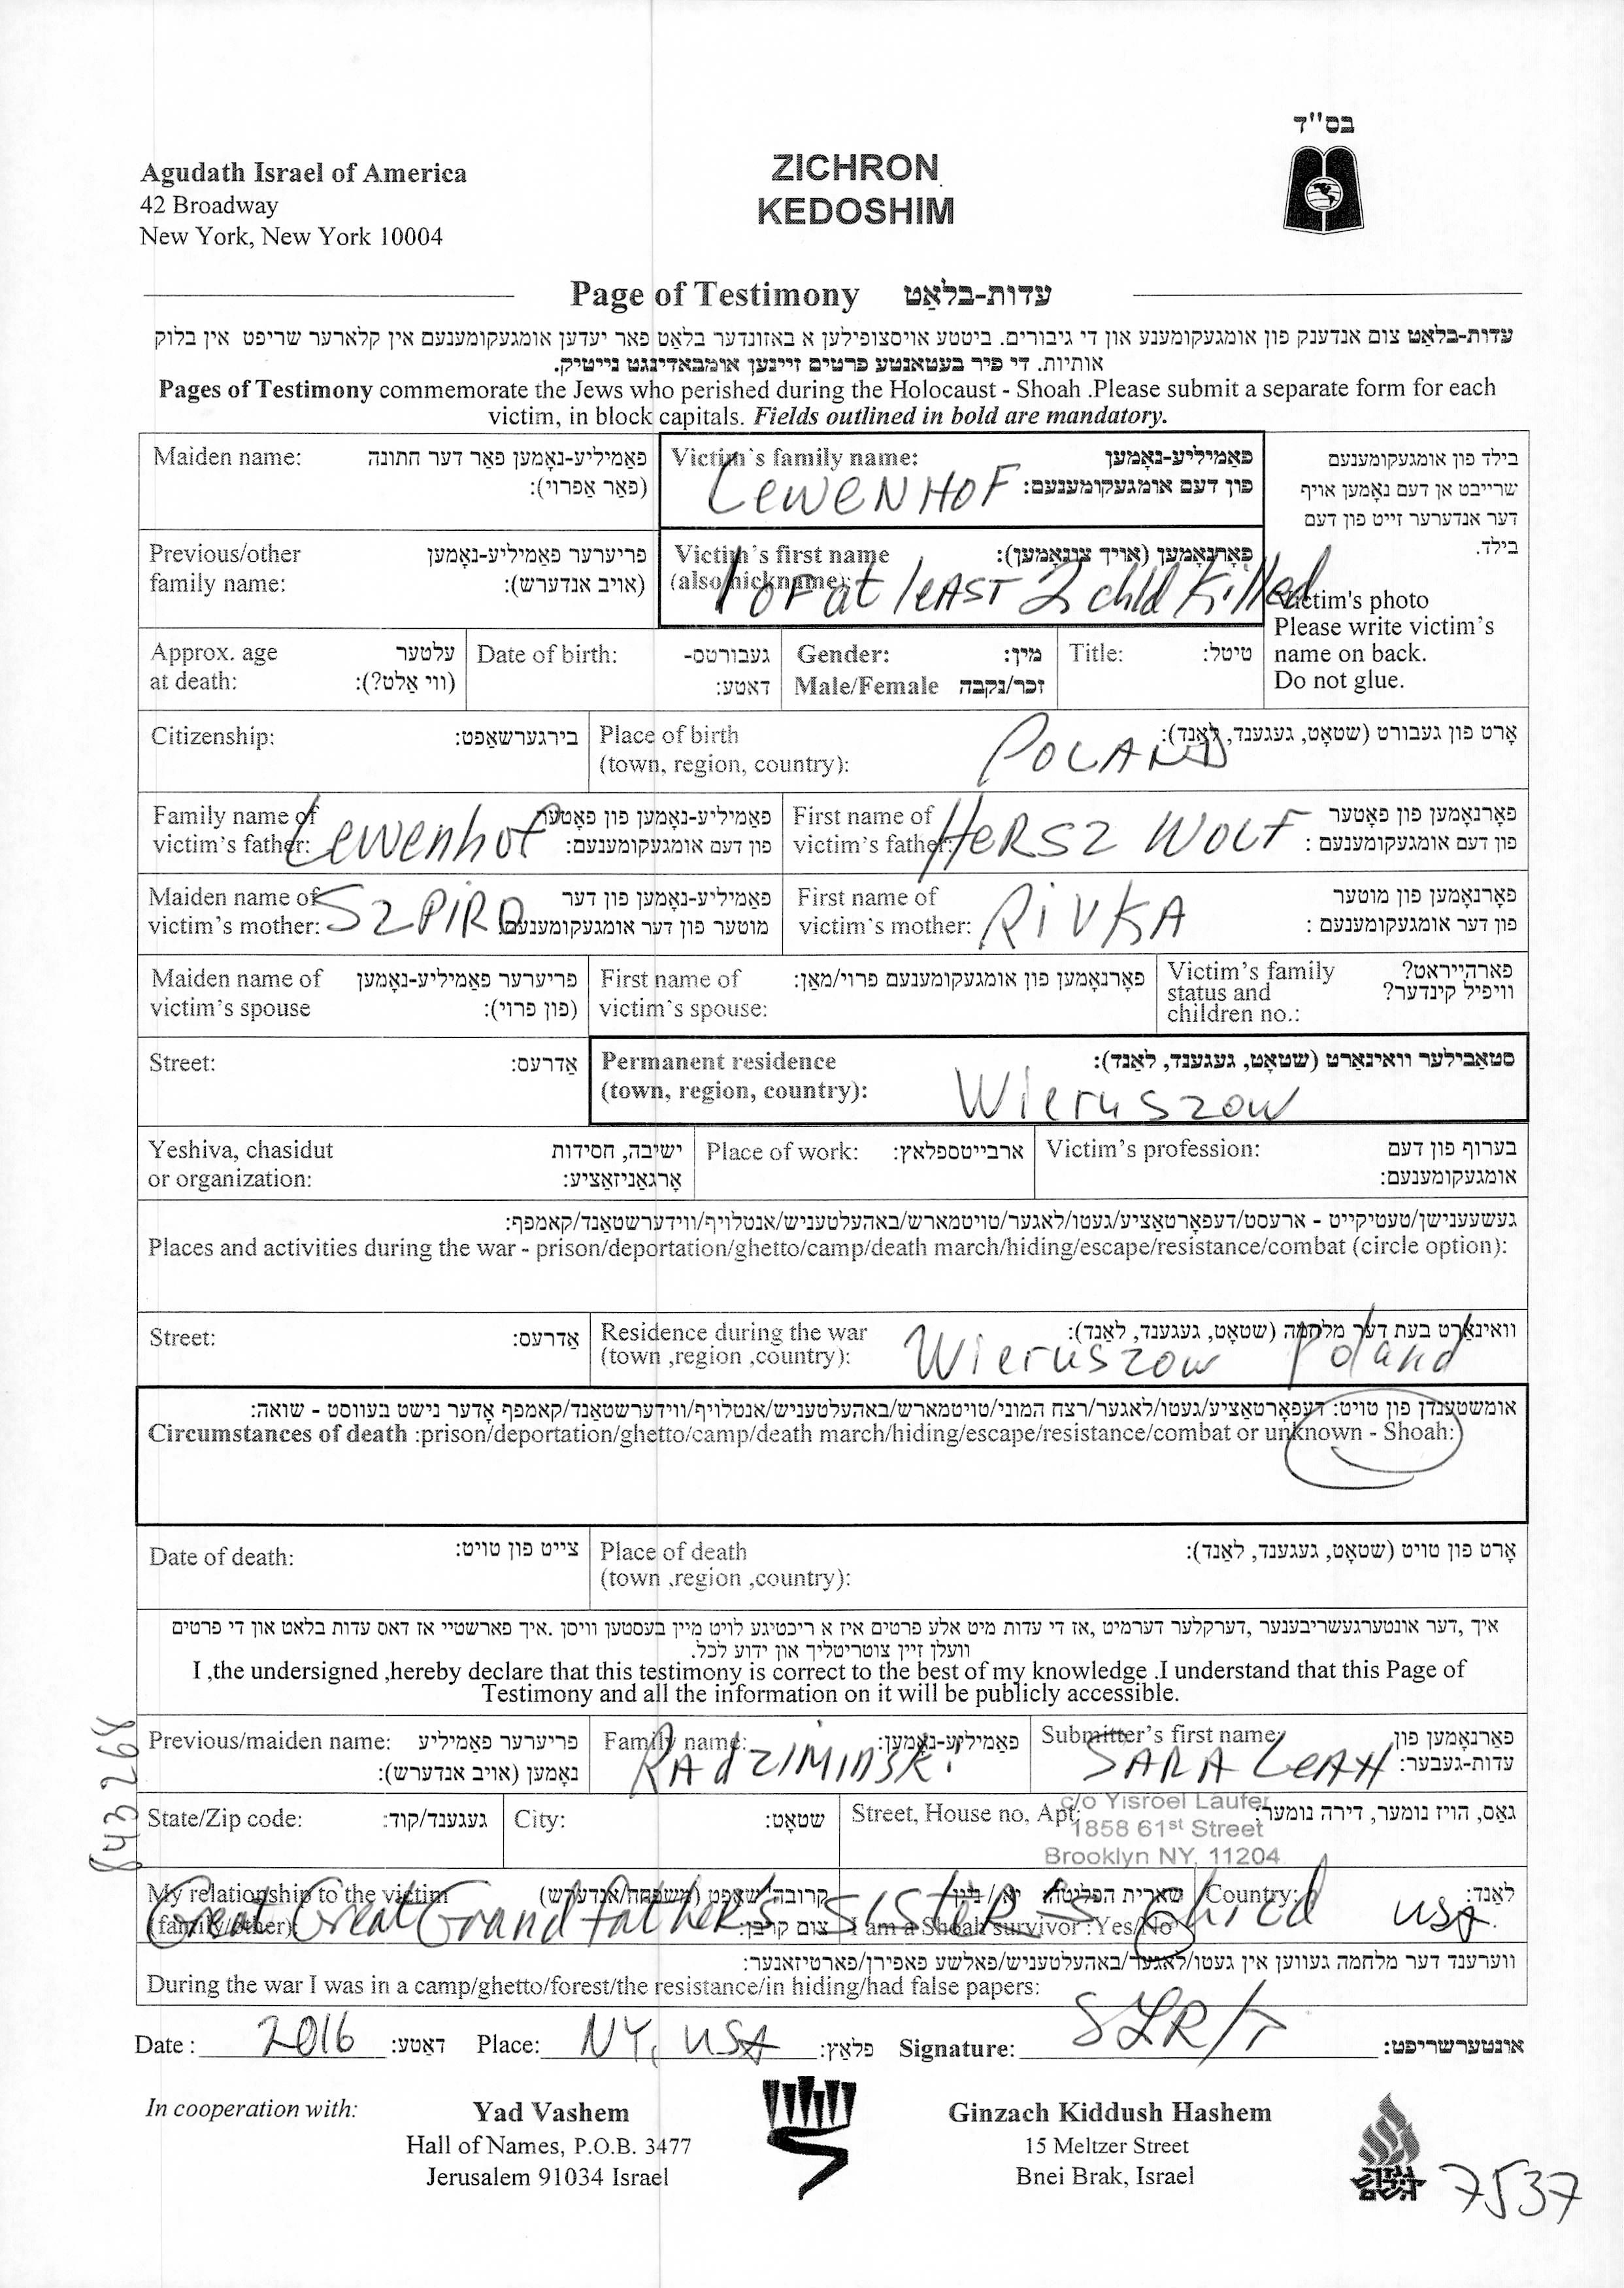 בס"ד
Agudath Israel of America
42 Broadway
New York, New York 10004
ZICHRON
KEDOSHIM
Page of Testimony עדות-בלאַט
עדות-בלאַט צום אנדענק פון אומגעקומענע און די גיבורים. ביטטע אויסצופילען א באזונדער בלאַט פאר יעדען אומגעקומענעם אין קלארער שריפט אין בלוק
אותיות. די פיר בעטאנטע פרטים זיינען אומבאדינגט נייטיק.
Pages of Testimony commemorate the Jews who perished during the Holocaust - Shoah .Please submit a separate form for each
victim, in block capitals. Fields outlined in bold are mandatory.
Maiden name: פאַמיליע-נאָמען פאר דער חתונה
(פאַר אַפרוי):
Victim's family name: פאַמיליע-נאָמען
פון דעם אומגעקומענעם:
LeWENHOF
בילד פון אומגעקומענעם
שרייבט אן דעם נאָמען אויף
דער אנדערער זייט פון דעם
בילד.
Previous/other פריערער פאַמיליע-נאָמען
family name: (אויב אנדערש):
Victim's first name פאָרנאָמען (אויך צונאָמען):
(also nickname):
1 oF at leAST 2 chld Killed
Victim's photo
Please write victim's
name on back.
Do not glue.
Approx. age עלטער
at death: (ווי אַלט?):
Date of birth: געבורטס-
דאטע:
Gender: מין:
Male/Female זכר/נקבה
Title: טיטל:
Citizenship: בירגערשאַפט:
Place of birth אָרט פון געבורט (שטאָט, געגענד, לאַנד):
(town, region, country):
POLAND
Family name of פאַמיליע-נאָמען פון פאָטער
victim's father: פון דעם אומגעקומענעם:
Lewenhof
First name of פאָרנאָמען פון פאָטער
victim's father: פון דעם אומגעקומענעם :
HERSZ WOLF
Maiden name of פאַמיליע-נאָמען פון דער
victim's mother: מוטער פון דער אומגעקומענעם
SZPIRO
First name of פאָרנאָמען פון מוטער
victim's mother: פון דער אומגעקומענעם :
RiVKA
Maiden name of פריערער פאַמיליע-נאָמען
victim's spouse (פון פרוי):
First name of פאָרנאָמען פון אומגעקומענעם פרוי/מאַן:
victim's spouse:
Victim's family פארהייראט?
status and וויפיל קינדער?
children no.:
Street: אַדרעס:
Permanent residence סטאַבילער וואינאָרט (שטאָט, געגענד, לאַנד):
(town, region, country):
Wieruszow
Yeshiva, chasidut ישיבה, חסידות
or organization: אָרגאַניזאַציע:
Place of work: ארבייטספלאץ:
Victim's profession: בערוף פון דעם
אומגעקומענעם:
געשעענישן/טעטיקייט - ארעסט/דעפאָרטאַציע/געטו/לאגער/טויטמארש/באהעלטעניש/אנטלויף/ווידערשטאַנד/קאמפף:
Places and activities during the war - prison/deportation/ghetto/camp/death march/hiding/escape/resistance/combat (circle option):
Street: אַדרעס:
Residence during the war וואינאָרט בעת דער מלחמה (שטאָט, געגענד, לאַנד):
(town ,region ,country):
Wieruszow Poland
אומשטענדן פון טויט: דעפאָרטאַציע/געטו/לאגער/רצח המוני/טויטמארש/באהעלטעניש/אנטלויף/ווידערשטאַנד/קאמפף אָדער נישט בעווסט - שואה:
Circumstances of death :prison/deportation/ghetto/camp/death march/hiding/escape/resistance/combat or unknown - Shoah:
Date of death: צייט פון טויט:
Place of death אָרט פון טויט (שטאָט, געגענד, לאַנד):
(town ,region ,country):
איך ,דער אונטערגעשריבענער ,דערקלער דערמיט ,אז די עדות מיט אלע פרטים איז א ריכטיגע לויט מיין בעסטען וויסן .איך פארשטיי אז דאס עדות בלאט און די פרטים
וועלן זיין צוטריטליך און ידוע לכל.
I ,the undersigned ,hereby declare that this testimony is correct to the best of my knowledge .I understand that this Page of
Testimony and all the information on it will be publicly accessible.
843268
Previous/maiden name: פריערער פאַמיליע
נאָמען (אויב אנדערש):
Family name: פאַמיליע-נאָמען:
RAdZIMINSKi
Submitter's first name: פאַרנאָמען פון
עדות-געבער:
SARA LeAH
State/Zip code: געגענד/קוד:
City: שטאָט:
Street, House no, Apt: גאַס, הויז נומער, דירה נומער:
c/o Yisroel Laufer
1858 61st Street
Brooklyn NY, 11204
My relationship to the victim קרובה'שאַפט (משפחה/אנדערש)
(family/other): צום קרבן:
שארית הפליטה
I am a Shoah survivor :Yes/No
Country: לאַנד:
Great Great Grandfather's SISTER's child USA
ווערענד דער מלחמה געווען אין געטו/לאגער/באהעלטעניש/פאלשע פאפירן/פארטיזאנער:
During the war I was in a camp/ghetto/forest/the resistance/in hiding/had false papers:
Date : 2016 דאַטע: Place: NY, USA פלאַץ: Signature: SLR/T אונטערשריפט:
In cooperation with:
Yad Vashem
Hall of Names, P.O.B. 3477
Jerusalem 91034 Israel
Ginzach Kiddush Hashem
15 Meltzer Street
Bnei Brak, Israel
גנזך
קידוש
השם
7537